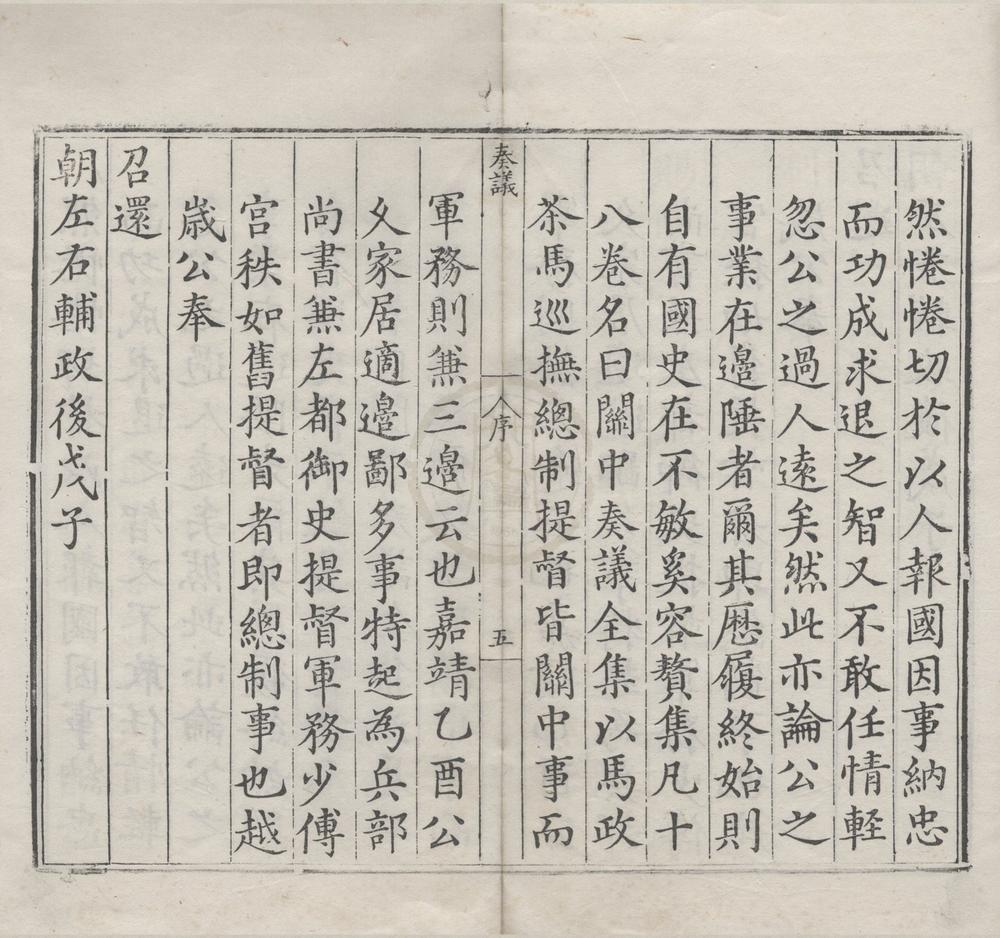 然惓惓切於以人報國因事納忠
而功成求退之智又不敢任情輕
忽公之過人遠矣然此亦論公之
事業在邉陲者爾其歴履終始則
自有國史在不敏奚容贅集凡十
八卷名曰關中奏議全集以馬政
茶馬巡撫總制提督皆關中事而
奏議
序
五
軍務則兼三邉云也嘉靖乙酉公
夂家居適邉鄙多事特起為兵部
尚書兼左都御史提督軍務少傅
宫秩如舊提督者即總制事也越
歳公奉
召還
朝左右輔政後戊子